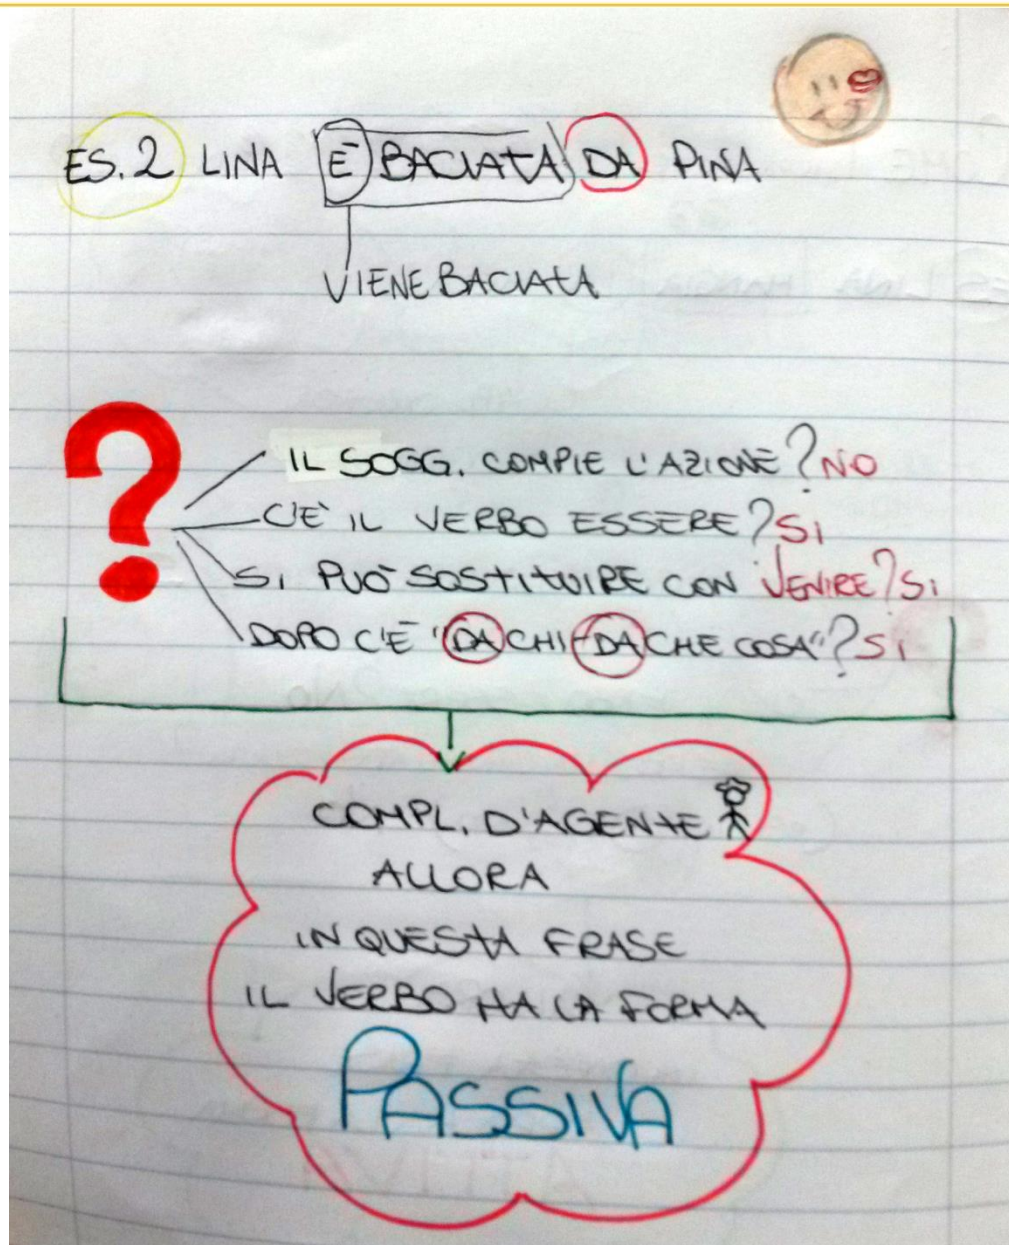 ES. 2 LINA È BACIATA DA PINA
VIENE BACIATA
? IL SOGG. COMPIE L'AZIONE? NO
C'È IL VERBO ESSERE? SI
SI PUÒ SOSTITUIRE CON VENIRE? SI
DOPO C'È "DA CHI-DA CHE COSA"? SI
COMPL. D'AGENTE
ALLORA
IN QUESTA FRASE
IL VERBO HA LA FORMA
PASSIVA